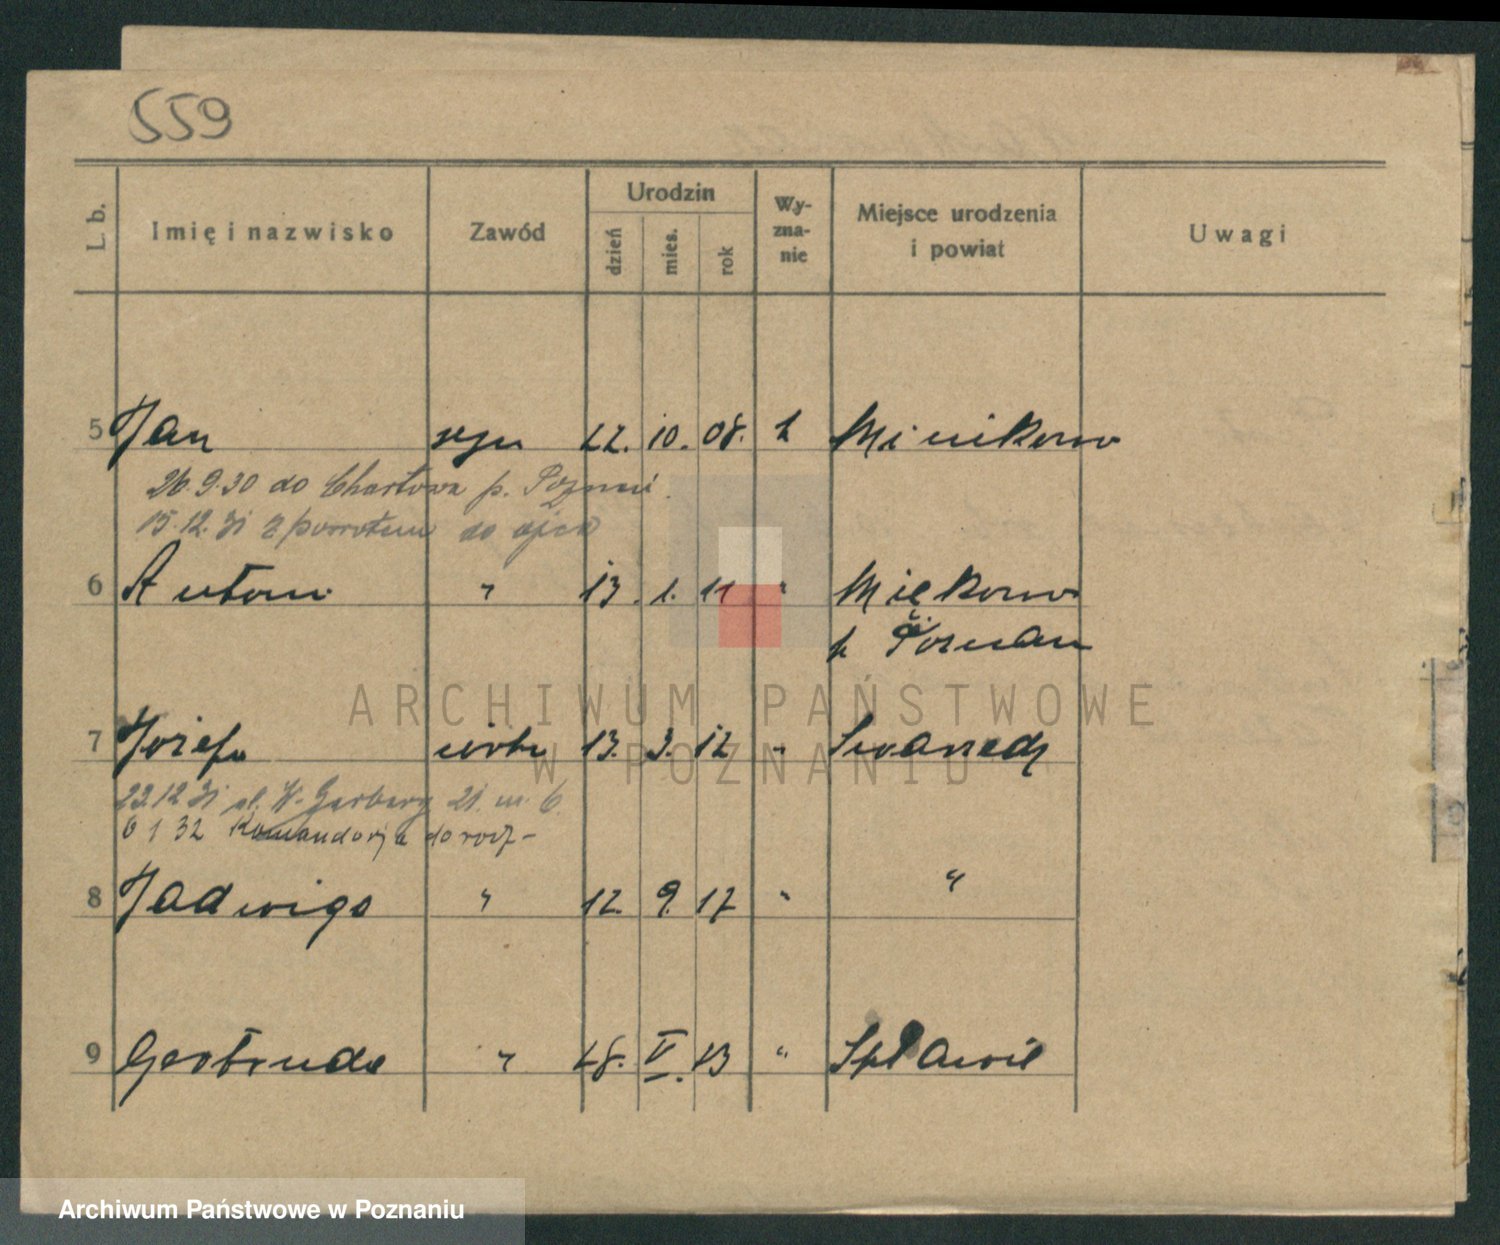 559
L. b. Imię i nazwisko Zawód Urodzin dzień mies. rok Wy-zna-nie Miejsce urodzenia i powiat Uwagi
5 Jan syn 22. 10. 08. k Minikowo
26.9.30 do Chartowa p. Poznań
15.12.31 z powrotem do ojca
6 Antoni " 13. 1. 11 "
p Poznań
7 Józefa córka 13. 3. 12 " Swarzędz
22 12 31 ul. W. Garbary 21. m. 6.
6 1 32 Komandorja do rodz-
8 Jadwiga " 12. 9. 17 " "
9 Gertruda " 28. V. 13 " Spławie
ARCHIWUM PAŃSTWOWE
W POZNANIU
Archiwum Państwowe w Poznaniu